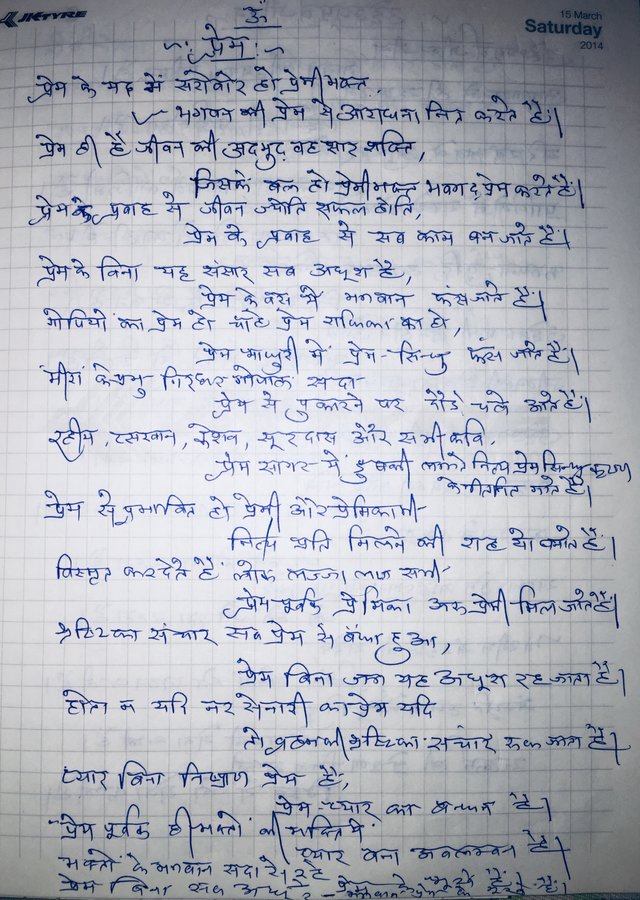 JKTYRE
15 March
Saturday
2014
ॐ
प्रेम
प्रेम के मद में सरोवोर हो प्रेमी भक्त,
भगवन की प्रेम से आराधना नित करते हैं।
प्रेम ही है जीवन की अदभुद वह सार शक्ति,
जिसके बल हो प्रेमी भक्त भगवद् प्रेम करते हैं।
प्रेम के प्रवाह से जीवन ज्योति सफल होति,
प्रेम के प्रवाह से सब काम बन जाते हैं।
प्रेम के बिना यह संसार सब अधूरा है,
प्रेम के वस में भगवान फंस जाते हैं।
गोपियों का प्रेम हो चाहे प्रेम राधिका का हो,
प्रेम माधुरी में प्रेम-सिन्धु फंस जाते हैं।
मीरा के प्रभु गिरधर गोपाल सदा
प्रेम से पुकारने पर दौडे चले आते हैं।
रहीम, रसखान, केशव, सूरदास और सभी कवि,
प्रेम सागर में डुबकी नित्य प्रेम सिन्धु कृष्ण
के गीत गाते हैं।
प्रेम से प्रभावित हो प्रेमी और प्रेमिका भी
नित्य प्रति मिलने की राह
विस्मृत कर देते हैं लोक लज्जा लाज सभी
प्रेम पूर्वक प्रेमिका अरु प्रेमी मिल जाते हैं।
का संचार सब प्रेम से बंधा हुआ,
प्रेम बिना जग यह अधूरा रह जाता है।
होता न यदि नर से नारी का प्रेम यदि
तो का संचार रुक जाता है।
प्यार बिना निष्प्राण प्रेम है,
प्रेम प्यार का बन्धन है।
प्रेम पूर्वक ही भक्तों की भक्ति में
प्यार बना अवलम्बन है।
भक्तों के भगवान सदा से
प्रेम बिना सब